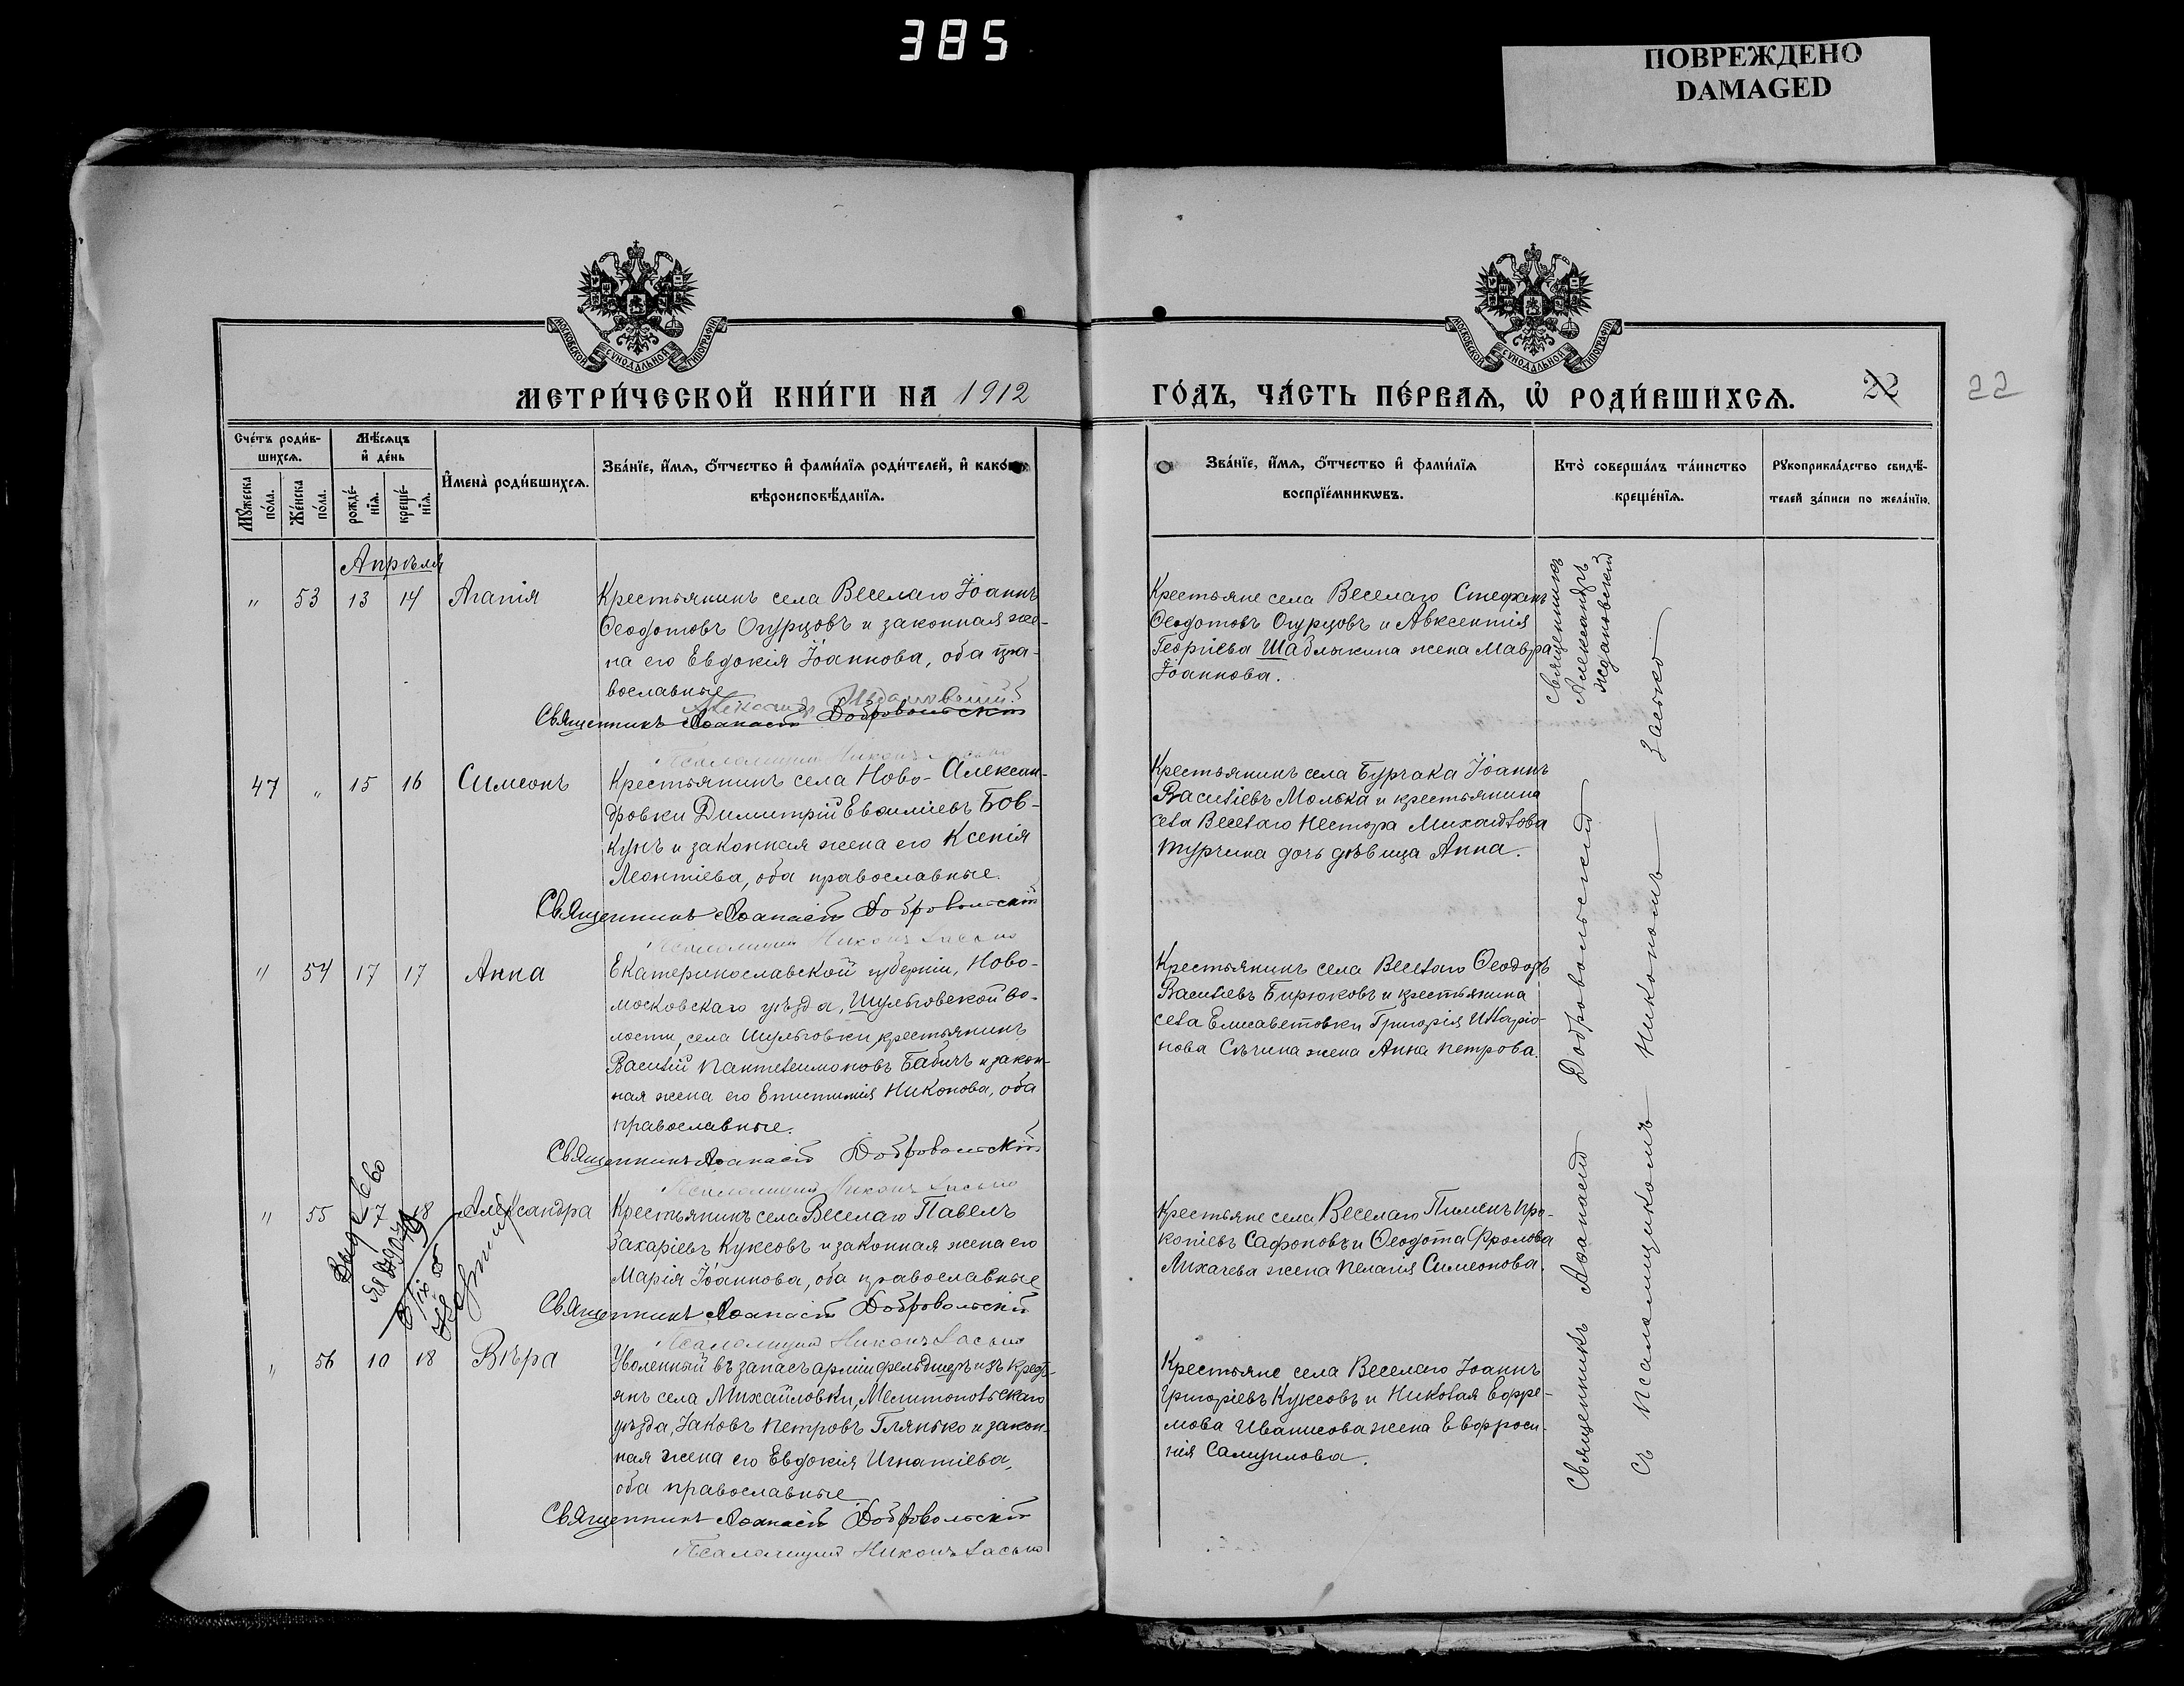 385
ПОВРЕЖДЕНО
DAMAGED
МОСКОВСКОЙ СѴНОДАЛЬНОЙ ТИПОГРАФІИ
МОСКОВСКОЙ СѴНОДАЛЬНОЙ ТИПОГРАФІИ
МЕТРИ́ЧЕСКОЙ КНИ́ГИ НА 1912
ГО́ДЪ, ЧА́СТЬ ПЕ́РВАЯ, Ѡ РОДИ́ВШИХСЯ.
22
22
Сче́тъ роди́в-
шихся.
Мѣ́сяцъ
и де́нь
Му́жеска
по́ла.
Же́нска
по́ла.
рожде́-
нїя.
креще́-
нїя.
Имена̀ роди́вшихся.
Зва́нїе, и́мя, о́тчество и фами́лїя роди́телей, и како́гѡ
вѣроисповѣ́данїя.
Зва́нїе, и́мя, о́тчество и фами́лїя
воспрїе́мникѡвъ.
Кто̀ соверша́лъ та́инство
креще́нїя.
Рукоприкла́дство свидѣ́-
телей за́писи по жела́нїю.
Апрѣля
" 53 13 14 Агапія
Крестьянинъ села Веселаго Іоаннъ
Ѳеодотовъ Огурцовъ и законная же-
на его Евдокія Іоаннова, оба пра-
вославные
Александръ Ждановскій
Священникъ Аѳанасій Добровольскій
Псаломщикъ Никонъ Засько
Крестьяне села Веселаго Стефанъ
Ѳеодотовъ Огурцовъ и Авксентія
Георгіева Шаблыкина жена Мавра
Іоаннова.
Священникъ
Александръ
Ждановскій
47 " 15 16 Симеонъ
Крестьянинъ села Ново-Алексан-
дровки Димитрій Евѳиміевъ Бов-
кунъ и законная жена его Ксенія
Леонтіева, оба православные.
Священникъ Аѳанасій Добровольскій
Псаломщикъ Никонъ Засько
Крестьянинъ села Бурчака Іоаннъ
Василіевъ Молька и крестьянина
села Веселаго Нестора Михаилова
Турчина дочь дѣвица Анна.
" 54 17 17 Анна
Екатеринославской губерніи, Ново-
московскаго уѣзда, Шульговской во-
лости, села Шульговки, крестьянинъ
Василій Пантелеимоновъ Бабичъ и закон-
ная жена его Епистимія Никонова, оба
православные.
Священникъ Аѳанасій Добровольскій
Псаломщикъ Никонъ Засько
Крестьянинъ села Веселаго Ѳеодоръ
Василіевъ Бирюковъ и крестьянина
села Елисаветовки Григорія Иларіо-
нова Сѣчина жена Анна Петрова.
" 55 17 18 Александра
Крестьянинъ села Веселаго Павелъ
Захаріевъ Куксовъ и законная жена его
Марія Іоаннова, оба православные
Священникъ Аѳанасій Добровольскій
Псаломщикъ Никонъ Засько
Крестьяне села Веселаго Пименъ Про-
копіевъ Сафоновъ и Ѳеодота Фролова
Лихачева жена Пелагія Симеонова.
" 56 10 18 Вѣра
Уволенный въ запасъ арміи фельдшеръ изъ крест-
янъ села Михайловки, Мелитопольскаго
уѣзда, Іаковъ Петровъ Глянько и закон-
ная жена его Евдокія Игнатіева,
оба православные
Священникъ Аѳанасій Добровольскій
Псаломщикъ Никонъ Засько
Крестьяне села Веселаго Іоаннъ
Григоріевъ Куксовъ и Николая Ефре-
мова Иванисова жена Евфроси-
нія Самуилова.
Священникъ Аѳанасій Добровольскій
съ псаломщикомъ Никономъ Засько